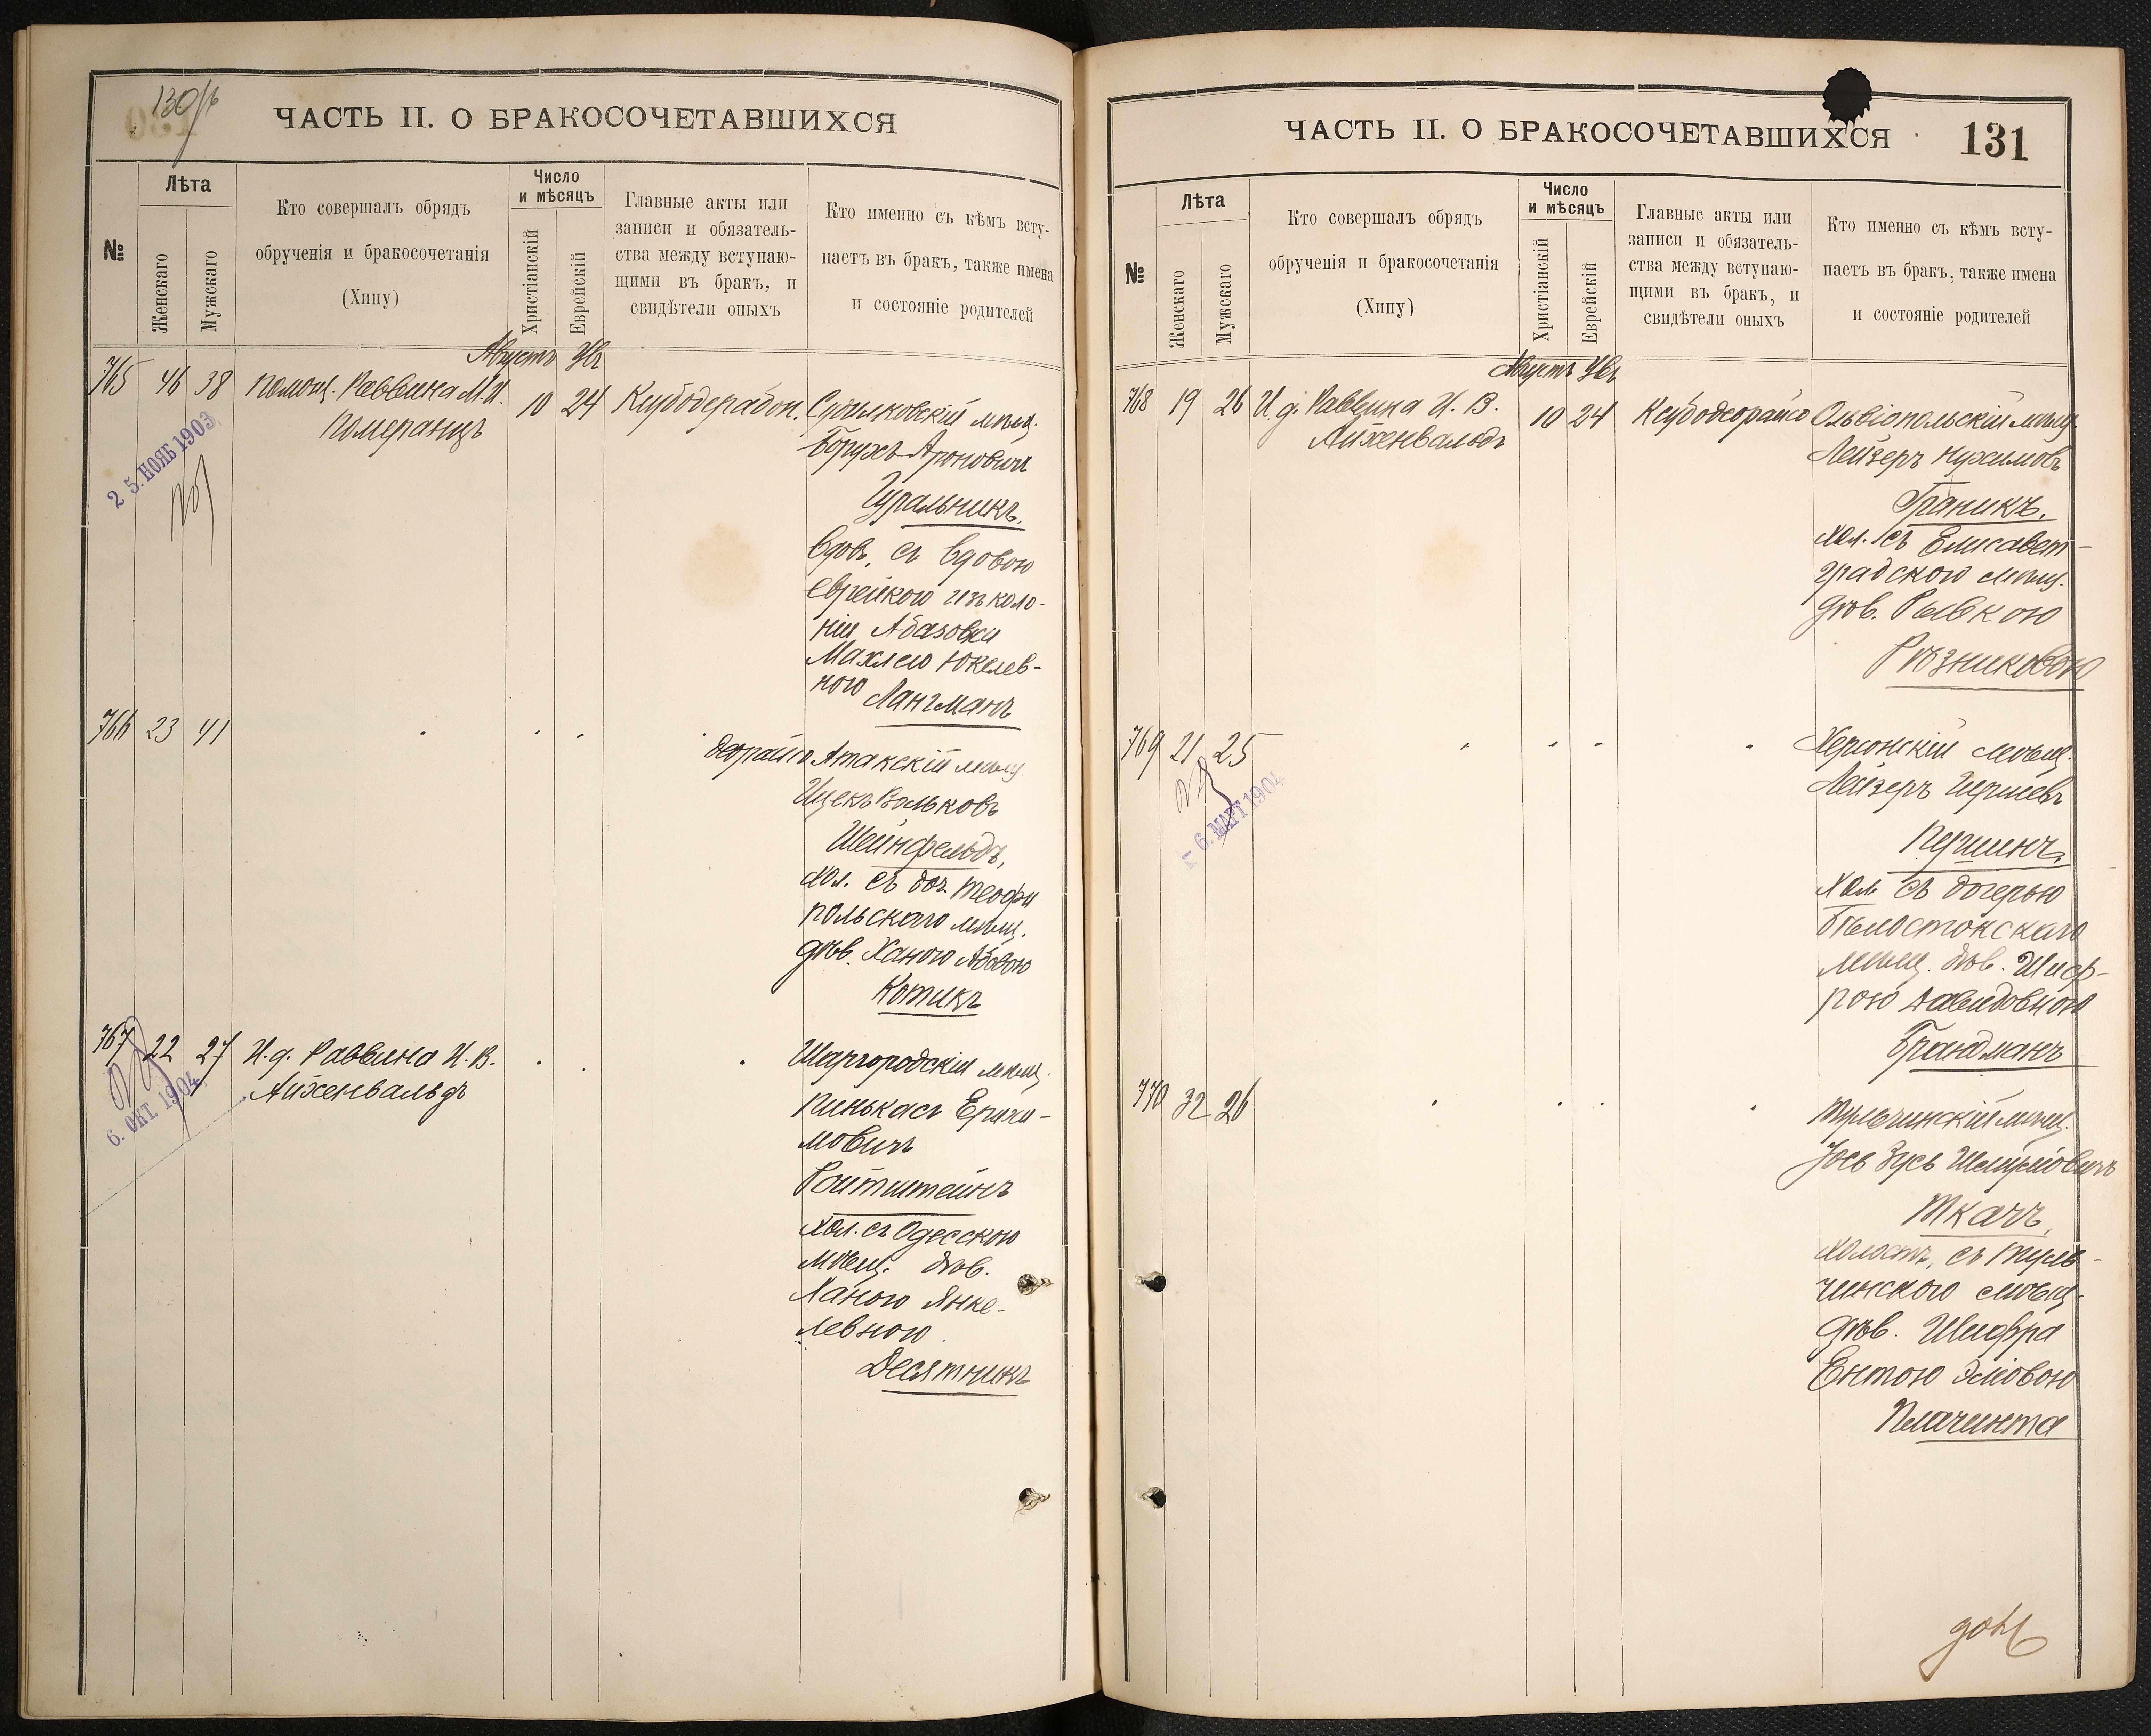 130/б
ЧАСТЬ II. О БРАКОСОЧЕТАВШИХСЯ
№
Лѣта
Женскаго
Мужскаго
Кто совершалъ обрядъ
обрученія и бракосочетанія
(Хипу)
Число
и мѣсяцъ
Христіанскій
Еврейскій
Главные акты или
записи и обязатель-
ства между вступаю-
щими въ бракъ, и
свидѣтели оныхъ
Кто именно съ кѣмъ всту-
паетъ въ бракъ, также имена
и состояніе родителей
Августъ
765 46 38 Помощ. Раввина М. И. 10 24
Померанцъ
25. НОЯБ 1903
Судилковскій мѣщ.
Борухъ Ароновичъ
Гуральникъ.
вдов. съ вдовою
еврейкою изъ коло-
ніи Абазовки
Махлею Юкелев-
ною Лангманъ
766 23 41
деорайсо Атакскій мѣщ.
Ицекъ Вольковъ
Шейнфельдъ,
хол. съ доч. Теофи
польскаго мѣщ.
дѣв. Ханою Абовою
Котикъ
767 22 27 И. д. Раввина И. В.
Айхенвальдъ
6. ОКТ. 1904
Шаргородскій мѣщ.
Пинькасъ Ерухи-
мовичъ
Ройтштейнъ
хол. съ Одесскою
мѣщ. дѣв.
Ханою Янке-
левною
Десятникъ
ЧАСТЬ II. О БРАКОСОЧЕТАВШИХСЯ 131
№
Лѣта
Женскаго
Мужскаго
Кто совершалъ обрядъ
обрученія и бракосочетанія
(Хипу)
Число
и мѣсяцъ
Христіанскій
Еврейскій
Главные акты или
записи и обязатель-
ства между вступаю-
щими въ бракъ, и
свидѣтели оныхъ
Кто именно съ кѣмъ всту-
паетъ въ бракъ, также имена
и состояніе родителей
Августъ
768 19 26 И. д. Раввина И. В. 10 24 Ксубодеорайсо
Айхенвальдъ
Ольвіопольскій мѣщ.
Лейзеръ Нухимовъ
Граникъ,
хол. съ Елисавет-
градскою мѣщ.
дѣв. Рывкою
Рѣзниковою
769 21 25
6. МАРТ 1904
Херсонскій мѣщ.
Лейзеръ
Першинъ,
хол. съ дочерью
Бѣлостокскаго
мѣщ. дѣв. Шиф-
рою Давидовною
Брандманъ
770 32 26
Тульчинскій мѣщ.
Іось Зусь
Ткачъ,
холостъ, съ Туль-
чинскою мѣщ.
дѣв. Шифра
Ентою Эліовою
Плачинта